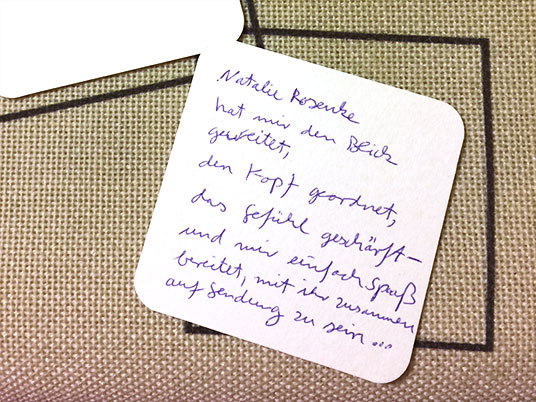 Natalie Rosenke
hat mir den Blick
geweitet,
den Kopf geordnet,
das Gefühl geschärft –
und mir einfach Spaß
bereitet, mit ihr zusammen
auf Sendung zu sein ...